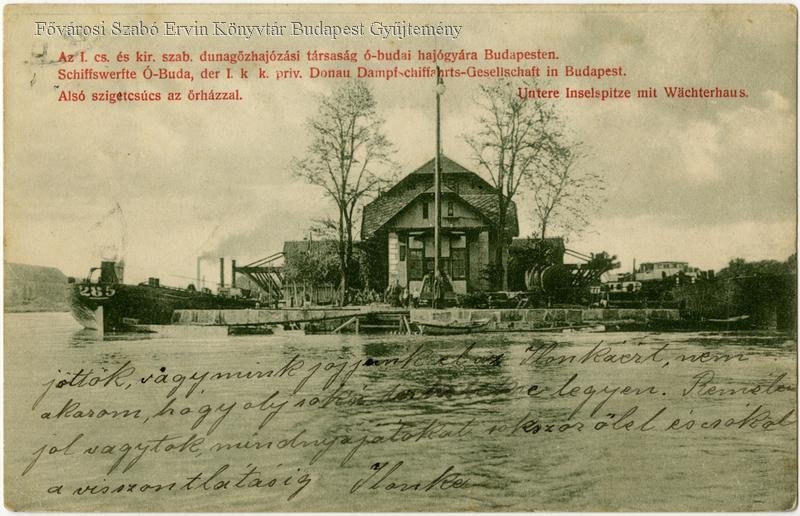 Fővárosi Szabó Ervin Könyvtár Budapest Gyűjtemény
Az I. cs. és kir. szab. dunagőzhajózási társaság ó-budai hajógyára Budapesten.
Schiffswerfte Ó-Buda, der I. k. k. priv. Donau Dampfschiffahrts-Gesellschaft in Budapest.
Alsó szigetcsúcs az őrházzal. Untere Inselspitze mit Wächterhaus.
285
jöttök, vagy mink jöjjünk el az Ilonkáért, nem
akarom, hogy oly soká legyen. Remélem
jól vagytok, mindnyájatokat sokszor ölel és csókol
a viszontlátásig Ilonka